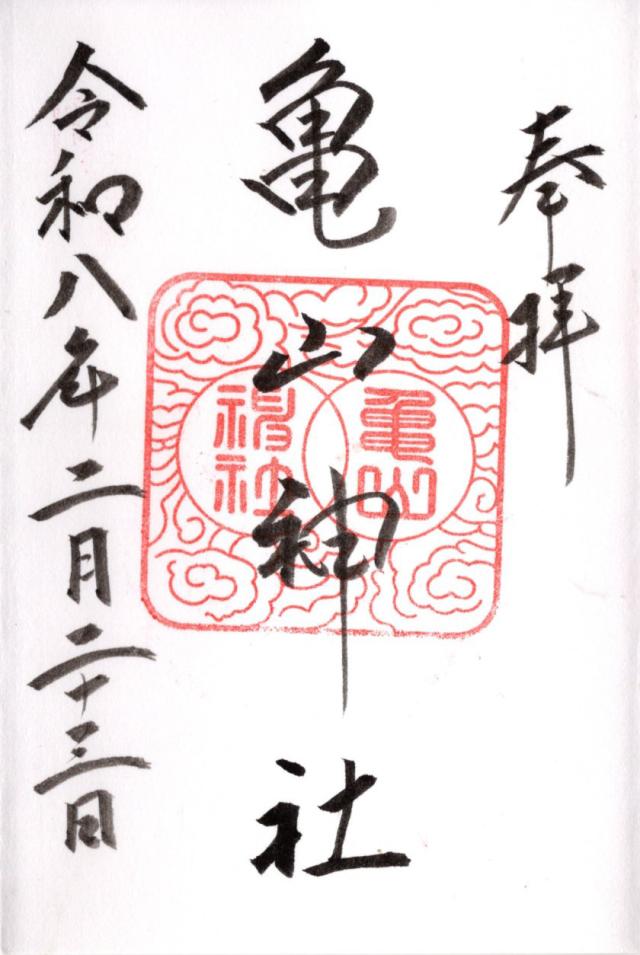 奉拝
亀山神社
亀山
神社
令和八年二月二十三日